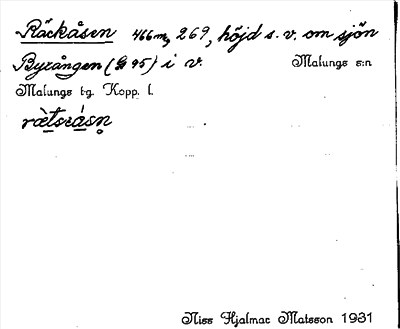 Räckåsen 466 m, 269, höjd s. v. om sjön
Byrången (G 95) i v. Malungs s:n
Malungs t-g. Kopp. l.
rætsɾásn̥
Niss Hjalmar Matsson 1931